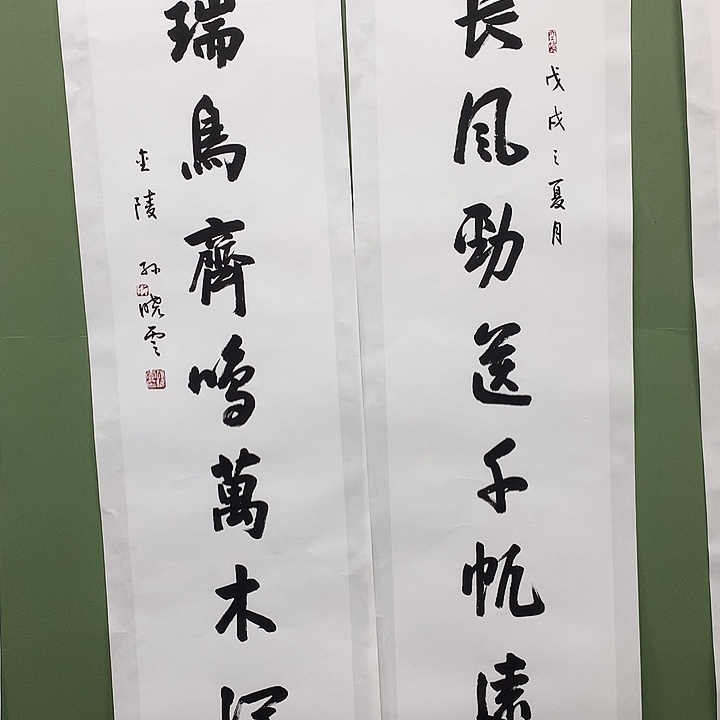 長風勁送千帆遠
戊戌之夏月
瑞鳥齊鳴萬木
金陵 孙晓雲